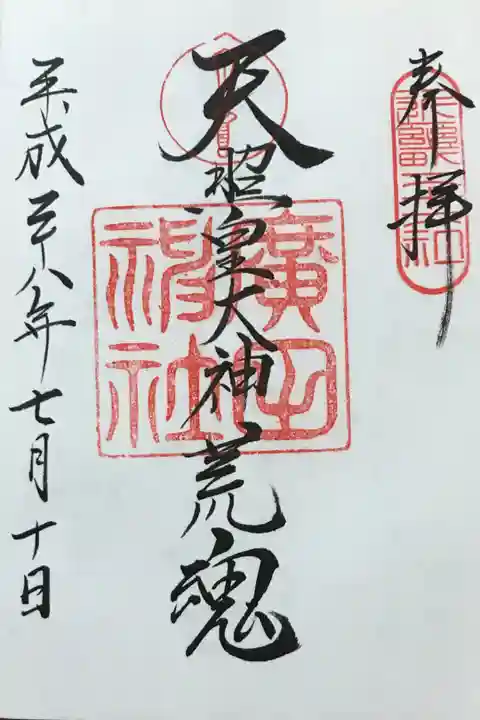 奉拝
天照皇大神荒魂
廣田神社
平成二十八年七月十日